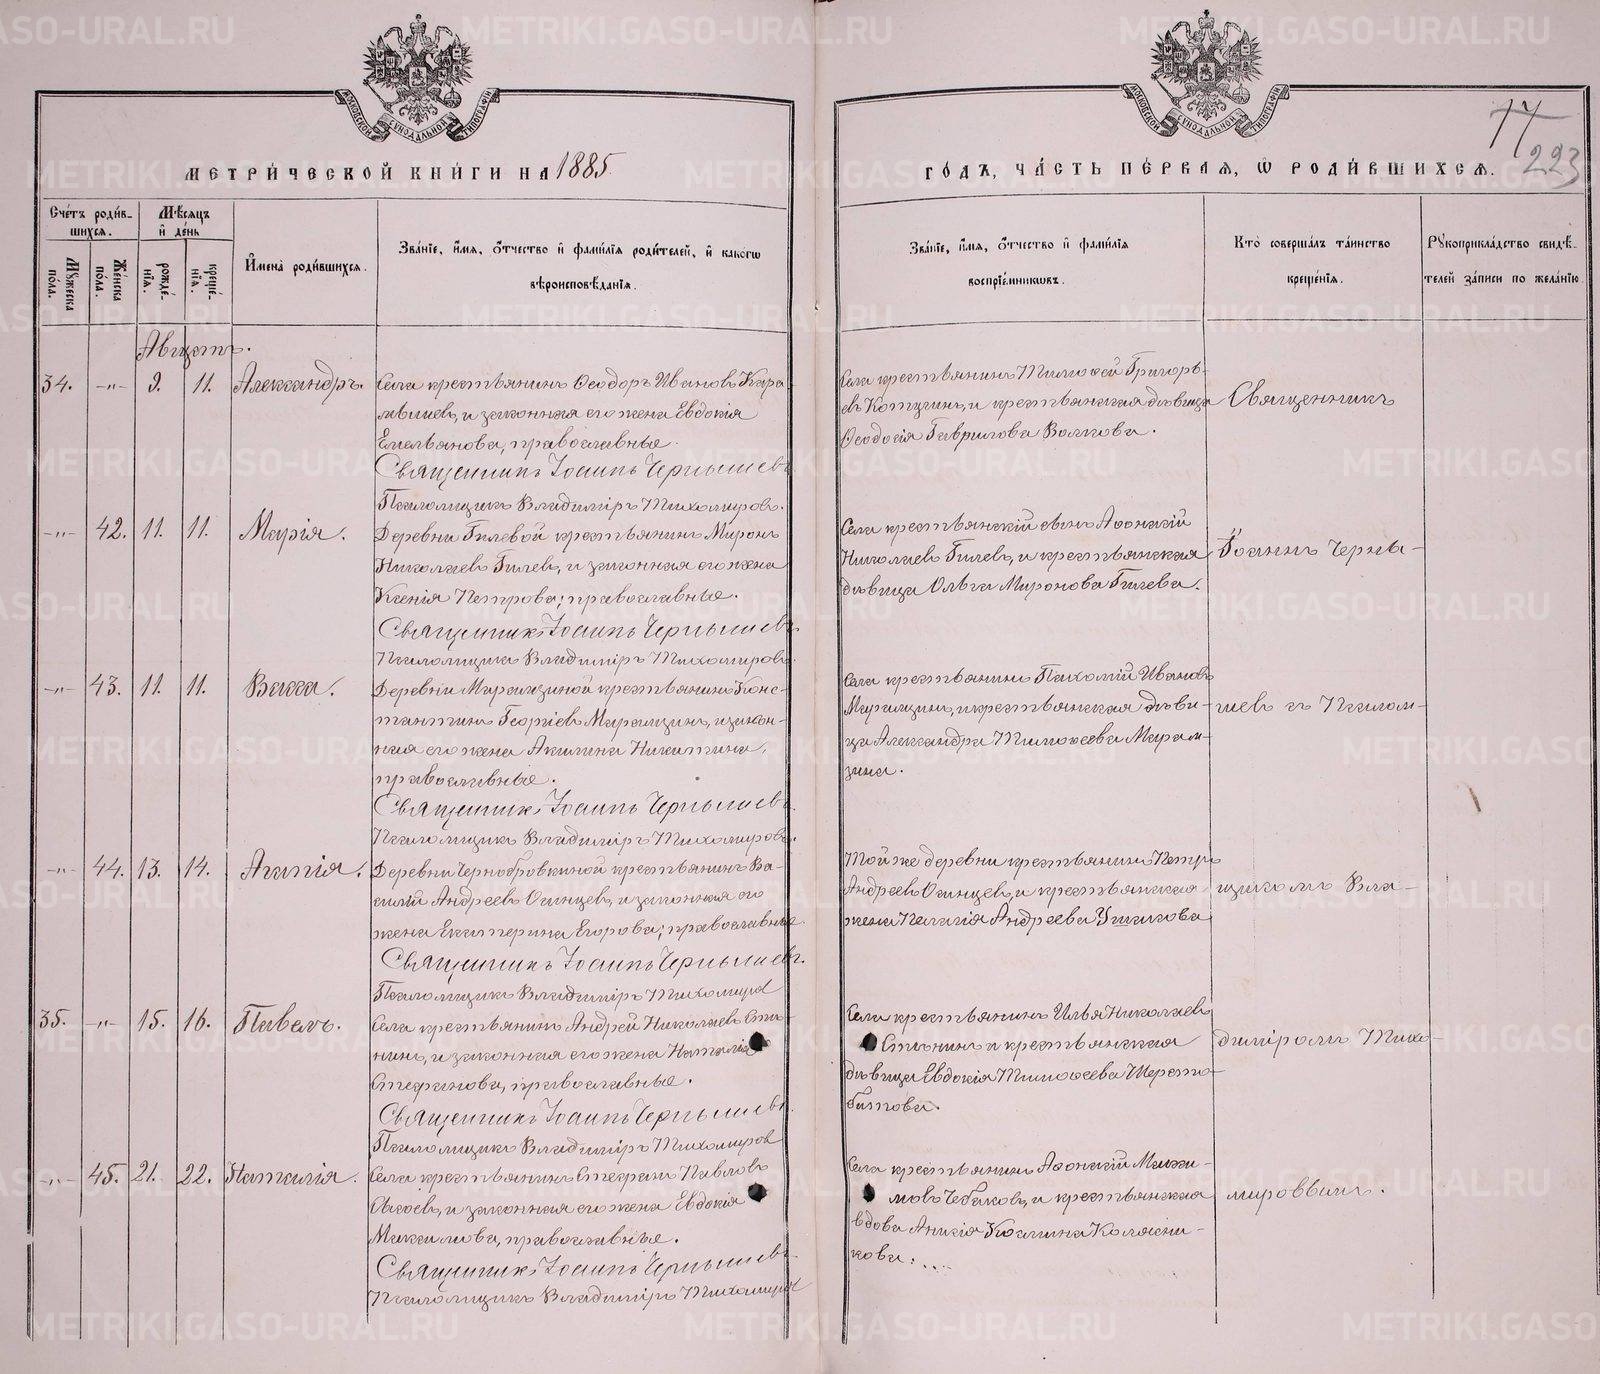 МЕТРИЧЕСКОЙ КНИГИ НА 1885
ГОДЪ, ЧАСТЬ ПЕРВАЯ, Ѡ РОДИВШИХСЯ.
17
223
МОСКОВСКОЙ СѴНОДАЛЬНОЙ ТИПОГРАФІИ
МОСКОВСКОЙ СѴНОДАЛЬНОЙ ТИПОГРАФІИ
Счетъ родившихся.
Мужеска пола.
Женска пола.
Мѣсяцъ и день
рожденія.
крещенія.
Имена родившихся.
Званіе, имя, отчество и фамилія родителей, и какогѡ
вѣроисповѣданія.
Званіе, имя, отчество и фамилія
воспріемникѡвъ.
Кто совершалъ таинство
крещенія.
Рукоприкладство свидѣ-
телей записи по желанію
Августъ.
34. -"- 9. 11. Александръ.
Села крестьянинъ Ѳеодоръ Ивановъ
и законная его жена Евдокія
Емельянова, православные.
Священникъ Іоаннъ Чернышевъ
Псаломщикъ Владиміръ Тихомировъ.
Села крестьянинъ Тимоѳей Григорь-
евъ и крестьянская дѣвица
Ѳеодосія Гаврилова Волкова.
-"- 42. 11. 11. Марія.
Деревни Гилевой крестьянинъ Миронъ
Николаевъ Гилевъ, и законная его жена
Ксенія Петрова; православные.
Священникъ Іоаннъ Чернышевъ
Псаломщикъ Владиміръ Тихомировъ.
Села крестьянскій сынъ Аѳонасій
Николаевъ Гилевъ, и крестьянская
дѣвица Ольга Миронова Гилева.
-"- 43. 11. 11. Васса.
Деревни Мурамзиной крестьянинъ Конс-
тантинъ Георгіевъ Мурамзинъ, и закон-
ная его жена Акилина Никитина,
православные.
Священникъ Іоаннъ Чернышевъ
Псаломщикъ Владиміръ Тихомировъ.
Села крестьянинъ Пахомій Ивановъ
Мурамзинъ, и крестьянская дѣви-
ца Александра Тимоѳеева Мурам-
зина.
-"- 44. 13. 14. Агапія.
Деревни Чернобровкиной крестьянинъ Ва-
силій Андреевъ Осинцевъ, и законная его
жена Екатерина Егорова; православные
Священникъ Іоаннъ Чернышевъ.
Псаломщикъ Владиміръ Тихомировъ
Той же деревни крестьянинъ Петръ
Андреевъ Осинцевъ, и крестьянская
жена Пелагія Андреева Ушакова
35. -"- 15. 16. Павелъ.
Села крестьянинъ Андрей Николаевъ Стѣ-
нинъ, и законная его жена Наталія
Стефанова, православные.
Священникъ Іоаннъ Чернышевъ.
Псаломщикъ Владиміръ Тихомировъ
Села крестьянинъ Илья Николаевъ
Стѣнинъ и крестьянская
дѣвица Евдокія Тимоѳеева Шерсто-
битова.
-"- 45. 21. 22. Наталія.
Села крестьянинъ Стефанъ Павловъ
и законная его жена Евдокія
Максимова, православные.
Священникъ Іоаннъ Чернышевъ
Псаломщикъ Владиміръ Тихомировъ
Села крестьянинъ Аѳонасій Макси-
мовъ Чебаковъ, и крестьянская
вдова Анисія Космина Колясни-
кова.
Священникъ
Іоаннъ Черны-
шевъ съ Псалом-
щикомъ Вла-
диміромъ Тихо-
мировымъ.